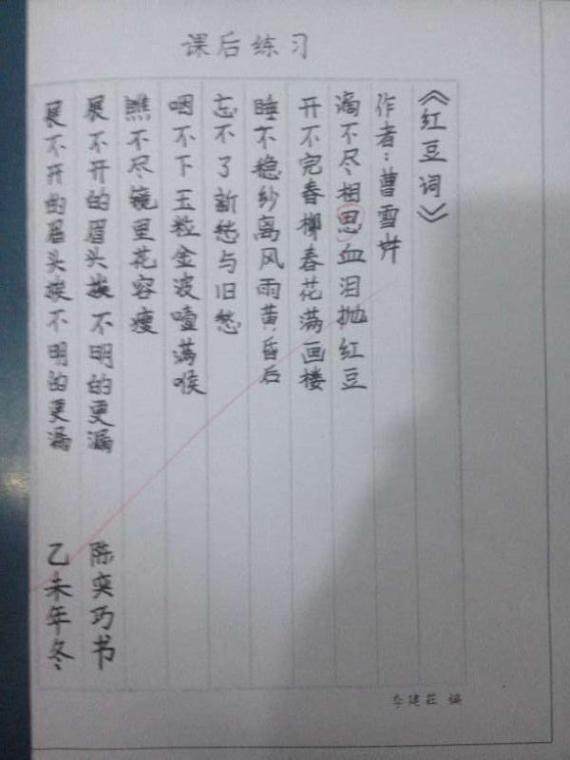 课后练习
《红豆词》
作者：曹雪芹
滴不尽相思血泪抛红豆
开不完春柳春花满画楼
睡不稳纱离风雨黄昏后
忘不了新愁与旧愁
咽不下玉粒金波噎满喉
瞧不尽镜里花容瘦
展不开的眉头挨不明的更漏
陈奕巧书
展不开的眉头挨不明的更漏
乙未年冬
李建莊 编